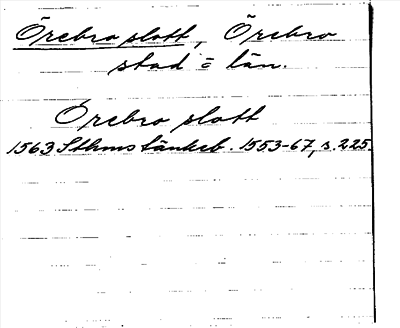 Örebro slott, Örebro
stad = län.
Örebro slott
1563 Sthms tänkeb. 1553-67, s. 225.